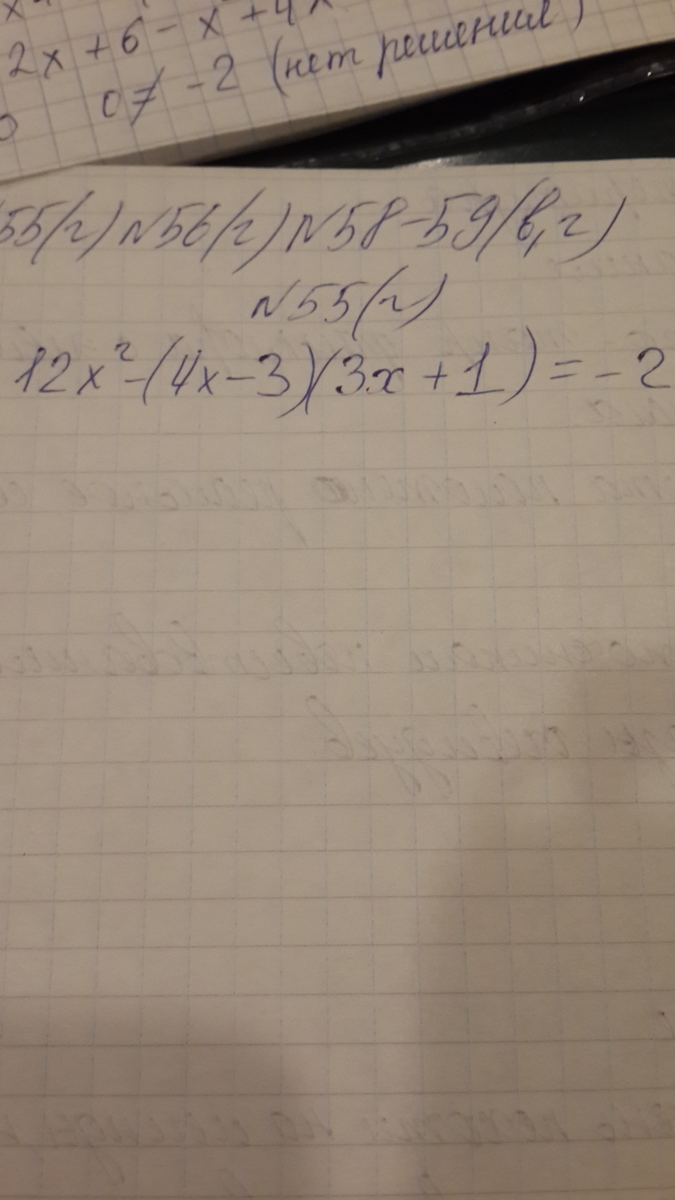 2x + 6 - x + 4x
0 ≠ -2 (нет решения)
55(г) №56(г) №58-59(в,г)
№55(г)
12x²-(4x-3)(3x+1)=-2